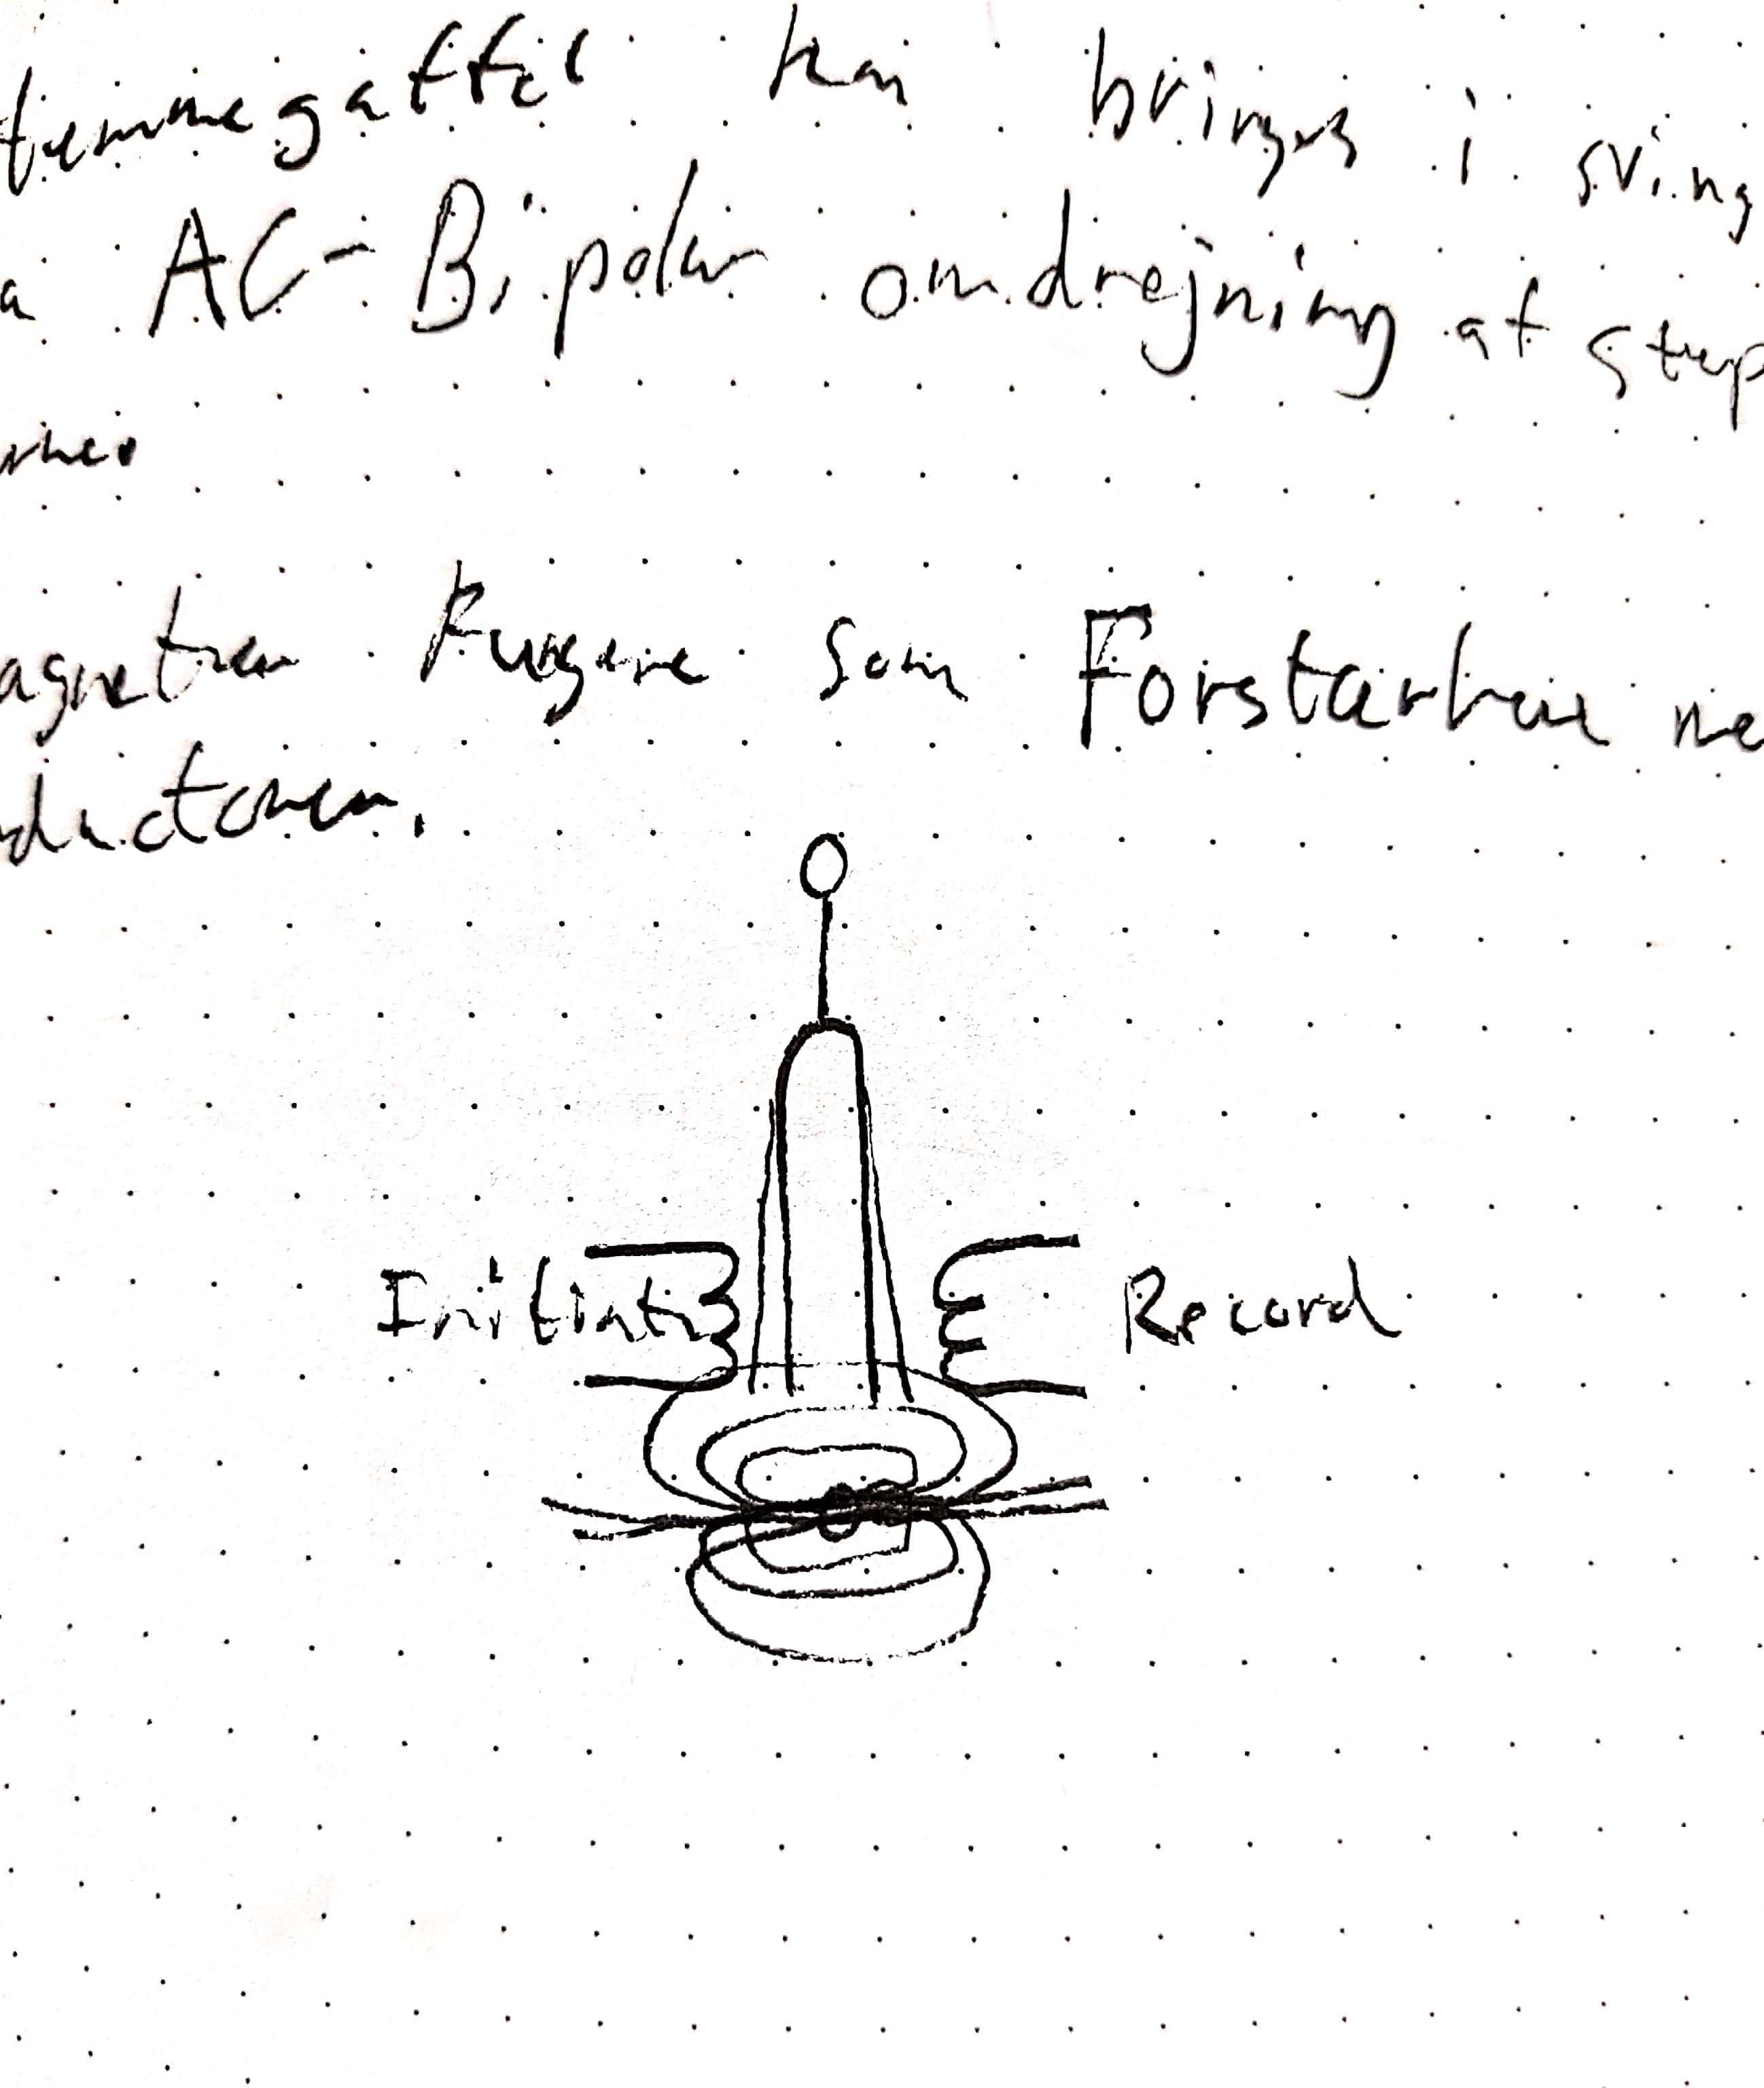 temmegaffel kan bringes i sving
a AC-Bipolar omdrejning at step
agneten fungere som Forstærker me
ductoren.
Initiate Record